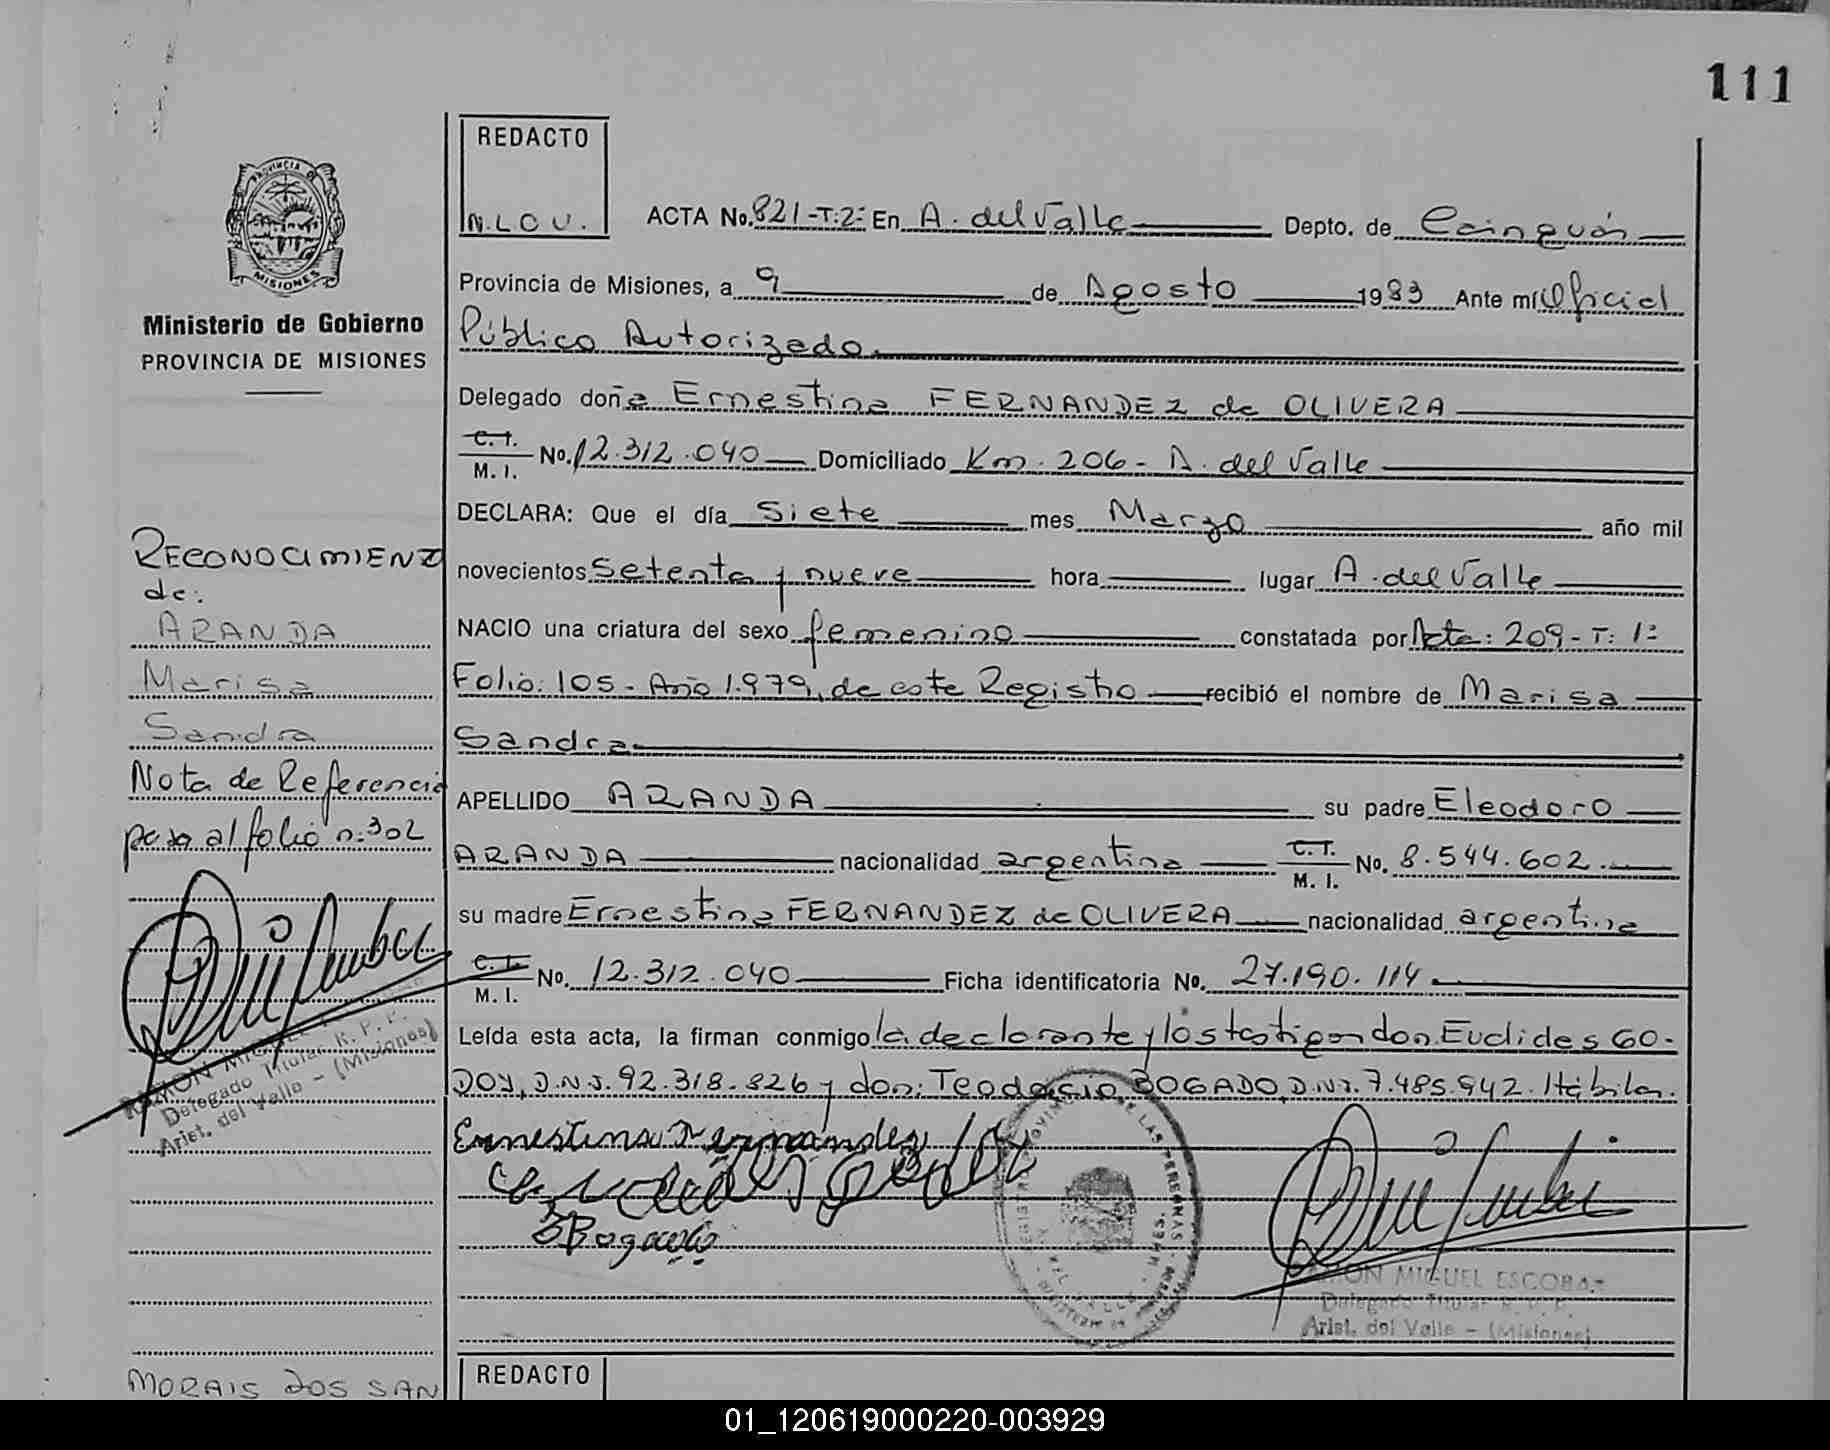 111
REDACTO
N.L.O.V.
PROVINCIA DE
MISIONES
Ministerio de Gobierno
PROVINCIA DE MISIONES
ACTA No. 821-T:2: En A. del Valle Depto. de Cainguás
Provincia de Misiones, a 9 de Agosto 1983 Ante mí Oficial
Público Autorizado.
Delegado doña Ernestina FERNANDEZ de OLIVERA
C. I. M. I. No. 12.312.040 Domiciliado Km. 206 - A. del Valle
DECLARA: Que el día siete mes Marzo año mil
novecientos setenta y nueve hora lugar A. del Valle
NACIO una criatura del sexo femenino constatada por Acta: 209 - T: 1:
Folio: 105 - Año 1.979, de este Registro recibió el nombre de Marisa
Sandra
APELLIDO ARANDA su padre Eleodoro
ARANDA nacionalidad argentina C. I. M. I. No. 8.544.602.
su madre Ernestina FERNANDEZ de OLIVERA nacionalidad argentina
C. I. M. I. No. 12.312.040 Ficha identificatoria No. 27.190.114
Leída esta acta, la firman conmigo la declarante y los testigos don Euclides GO-
DOY, D.N.I. 92.318.826 y don: Teodocio BOGADO, D.N.I. 7.485.942. Hábiles.
Ernestina Fernandez
Bogado
RAMON MIGUEL ESCOBAR
Delegado Titular R. P. P.
Arist. del Valle - (Misiones)
RECONOCIMIENTO
de:
ARANDA
Marisa
Sandra
Nota de Referencia
pasa al folio n: 302
RAMON MIGUEL
Delegado Titular R. P. P.
Arist. del Valle - (Misiones)
MORAIS DOS SAN
REDACTO
01_120619000220-003929